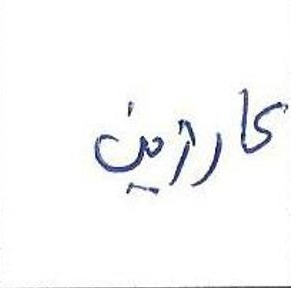 کارزین